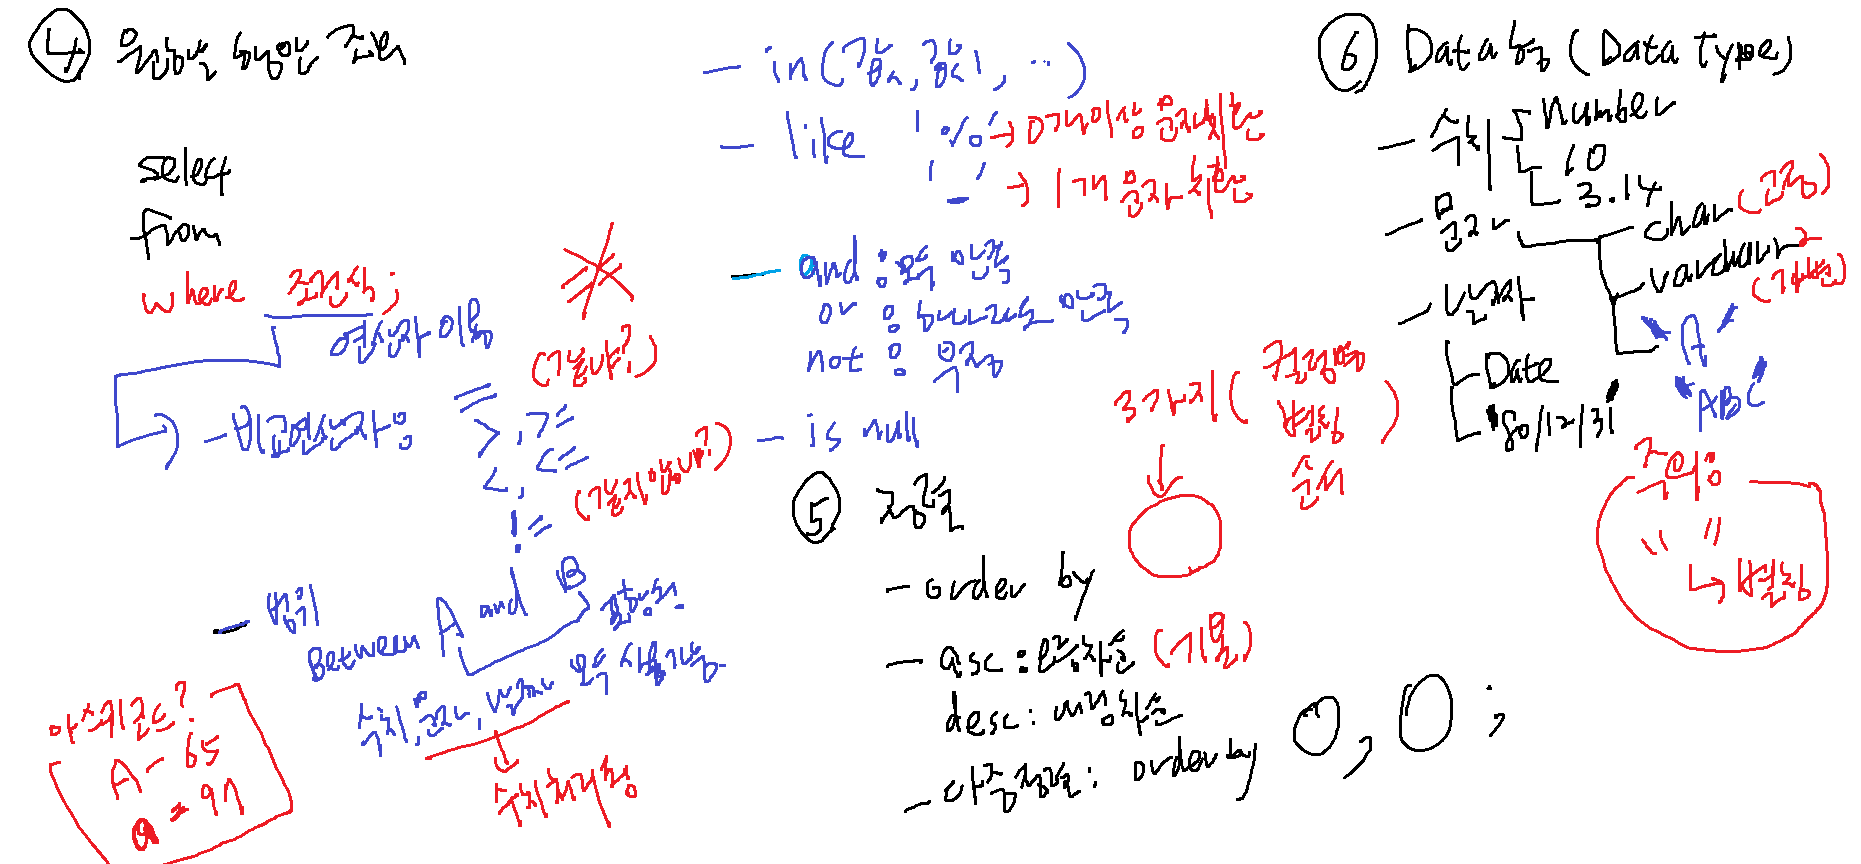 ④ 원하는 행만 조회
select
from
where 조건식;
연산자 이용
- 비교연산자 :
=
(같냐?)
>, >=
<, <=
!=
(같지않냐?)
- 범위
Between A and B
포함된
수치, 문자, 날짜 모두 사용가능.
수치처리됨
아스키코드?
A - 65
a = 97
- in(값, 값, ..)
- like '%' → 0개이상 문자치환
'_' → 1개 문자 치환
- and : 모두 만족
or : 하나라도 만족
not : 부정
- is null
⑤ 정렬
- order by
3가지(컬럼명
별칭
순서)
- asc : 오름차순 (기본)
desc : 내림차순
- 다중정렬 : order by O, O ;
⑥ Data형 (Data Type)
- 수치
number
10
3.14
- 문자
char (고정)
varchar2
(가변)
'A'
'ABC'
- 날짜
Date
'80/12/31'
주의 :
" "
↳ 별칭